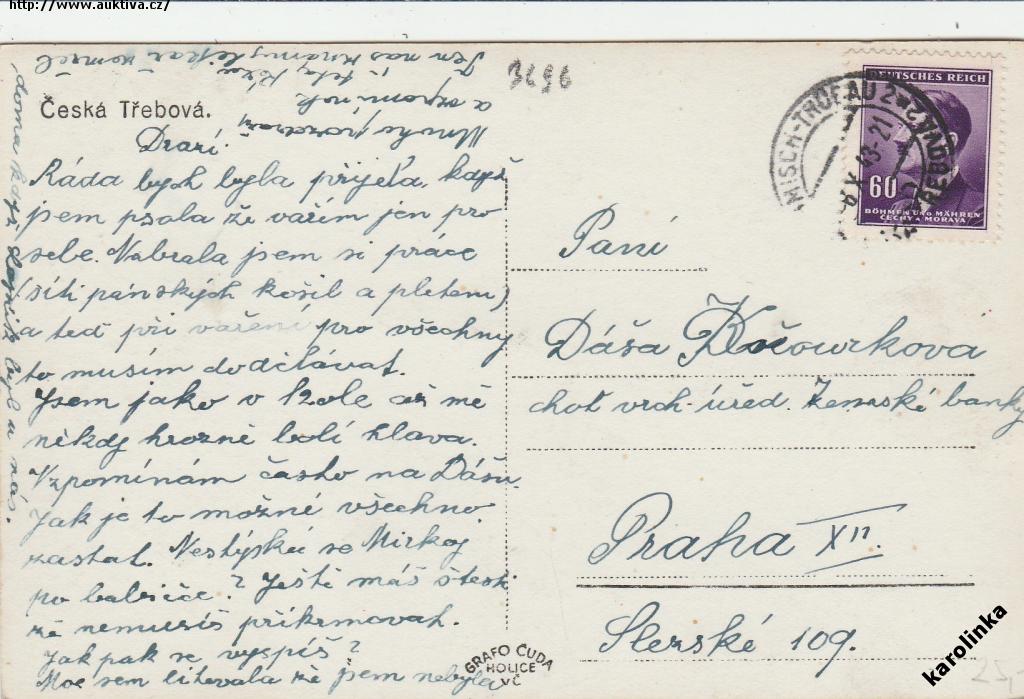 http://www.auktiva.cz/
3696
Česká Třebová.
Drazí!
Ráda bych byla přijela, když
jsem psala že vařím jen pro
sebe. Nabrala jsem si práce
(šití pánských košil a pletení)
a teď při vaření pro všechny
to musím dodělávat.
Jsem jako v kole až mě
někdy hrozně bolí hlava.
Vzpomínám často na Dášu
Jak je to možné všechno
zastat. Nestýská se Mirkoj
po babičce? Ještě máš štěstí
že nemusíš přikrmovat.
Jak pak se vyspíš?
Moc sem litovala že jsem nebyla
doma když byl u nás.
a vzpomínek
Ten náš známý lékař zemřel
GRAFO ČUDA
HOLICE
VČ
DEUTSCHES REICH
60
BÖHMEN UND MÄHREN
ČECHY A MORAVA
MISCH-TRÜBAU 2
Paní
Dáša
choť vrch. úřed. Zemské banky
Praha XII.
Slezské 109.
karolinka
25,-